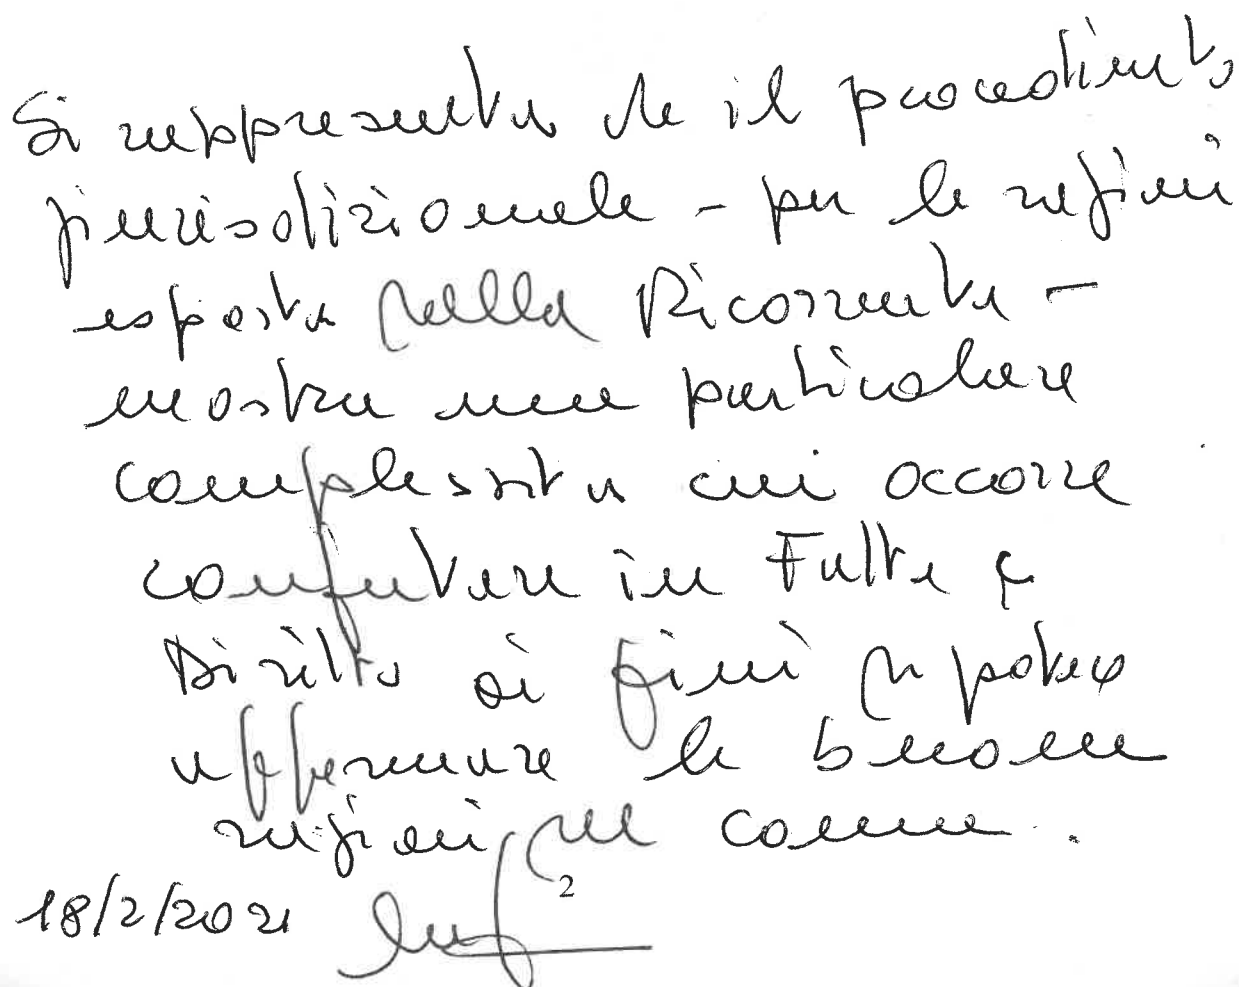 Si rappresenta che il procedimento
giurisdizionale - per le ragioni
esposte dalla Ricorrente -
mostra una particolare
complessità cui occorre
confutare in Fatto e
Diritto ai fini di poter
affermare le buone
ragioni del Comune.
2
18/2/2021